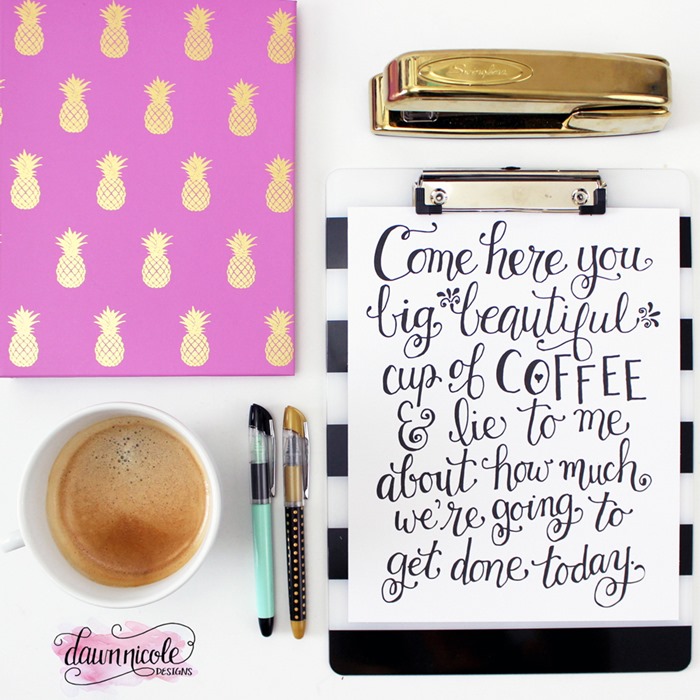 Swingline
Come here you
big beautiful
cup of COFFEE
& lie to me
about how much
we're going to
get done today.
dawnnicole
DESIGNS